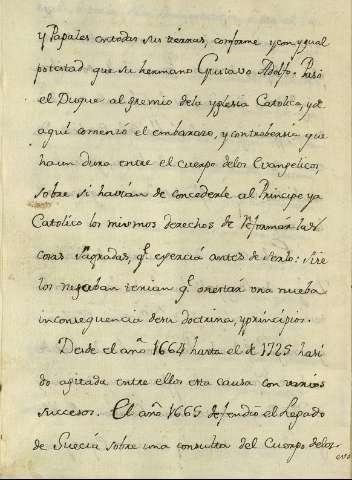 y Papales en todas sus tierras, conforme y con ygual
potestad que su hermano Gustavo Adolfo. Pasó
el Duque al gremio dela yglesia Catolica, y de
aqui comenzó el embarazo, y controbersia que
haun dura entre el cuerpo delos Evangelicos,
sobre si havian de concederle al Principe ya
Catolico los mismos derechos de reformár las
cosas sagradas, q.e egerciá antes de serlo: si se
los negaban tenian q.e prestár una nueba
inconsequencia de su doctrina, y principios.
Desde el año 1664 hasta el de 1725 ha si
do agitada entre ellos esta causa con varios
sucesos. El año 1665 defendio el Legado
de Suecia sobre una consulta del Cuerpo delos